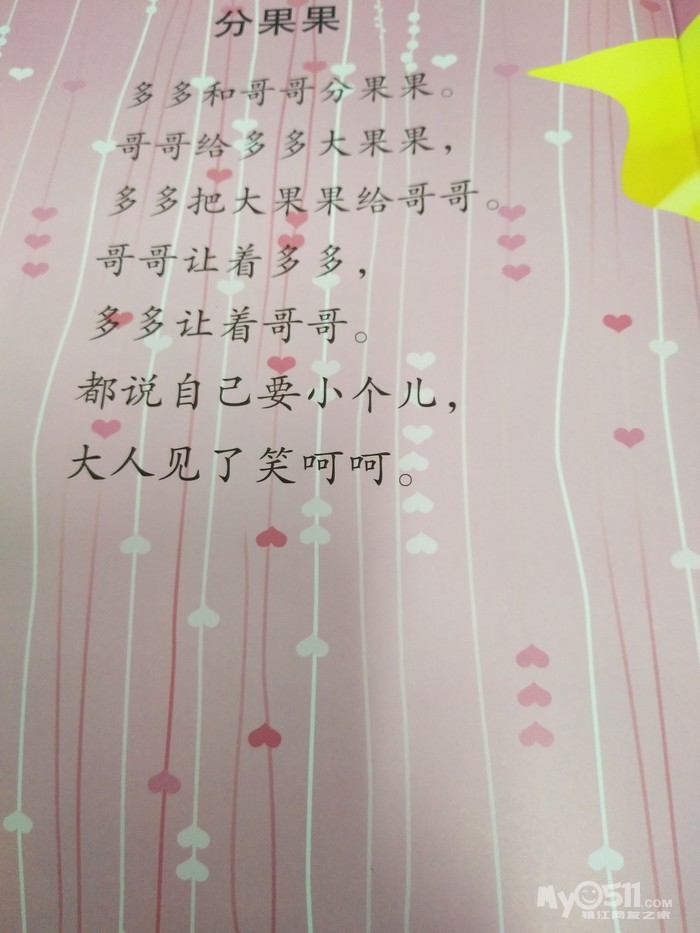 分果果
多多和哥哥分果果。
哥哥给多多大果果，
多多把大果果给哥哥。
哥哥让着多多，
多多让着哥哥。
都说自己要小个儿，
大人见了笑呵呵。
My0511.COM
镇江网友之家